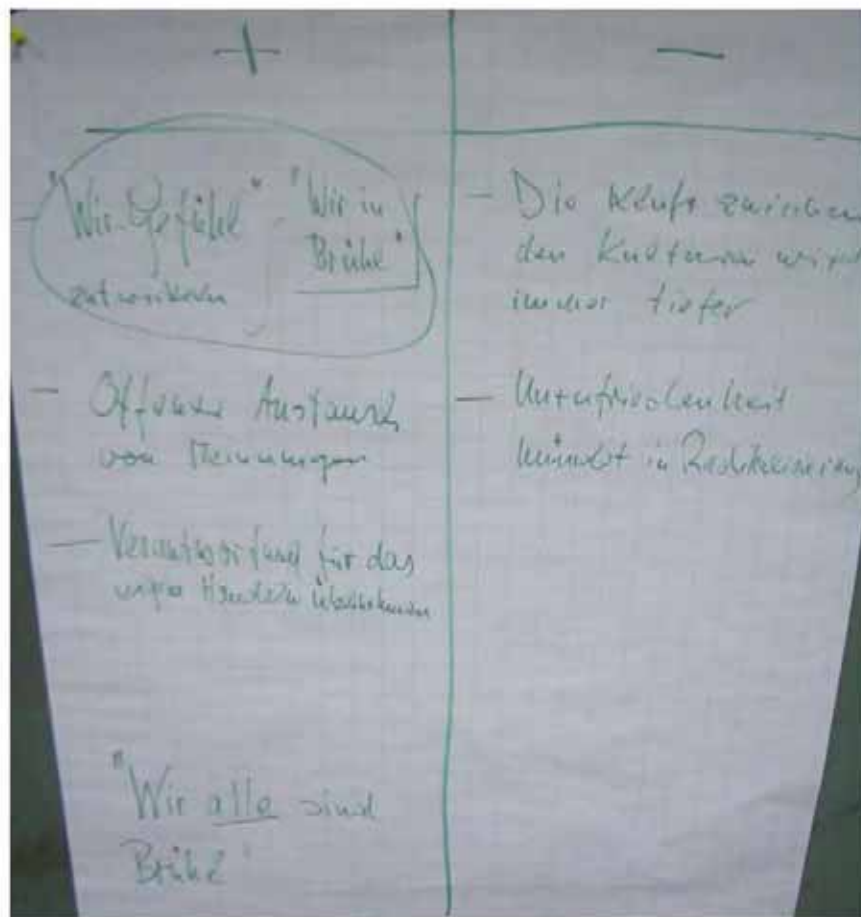 +
- "Wir-Gefühl" - "Wir in
Brühl"
entwickeln
- Offener Austausch
von Meinungen
- Verantwortung für das
Handeln übernehmen
"Wir alle sind
Brühl"
-
- Die Kluft zwischen
den Kulturen wird
immer tiefer
- Unzufriedenheit
mündet in Radikalisierung